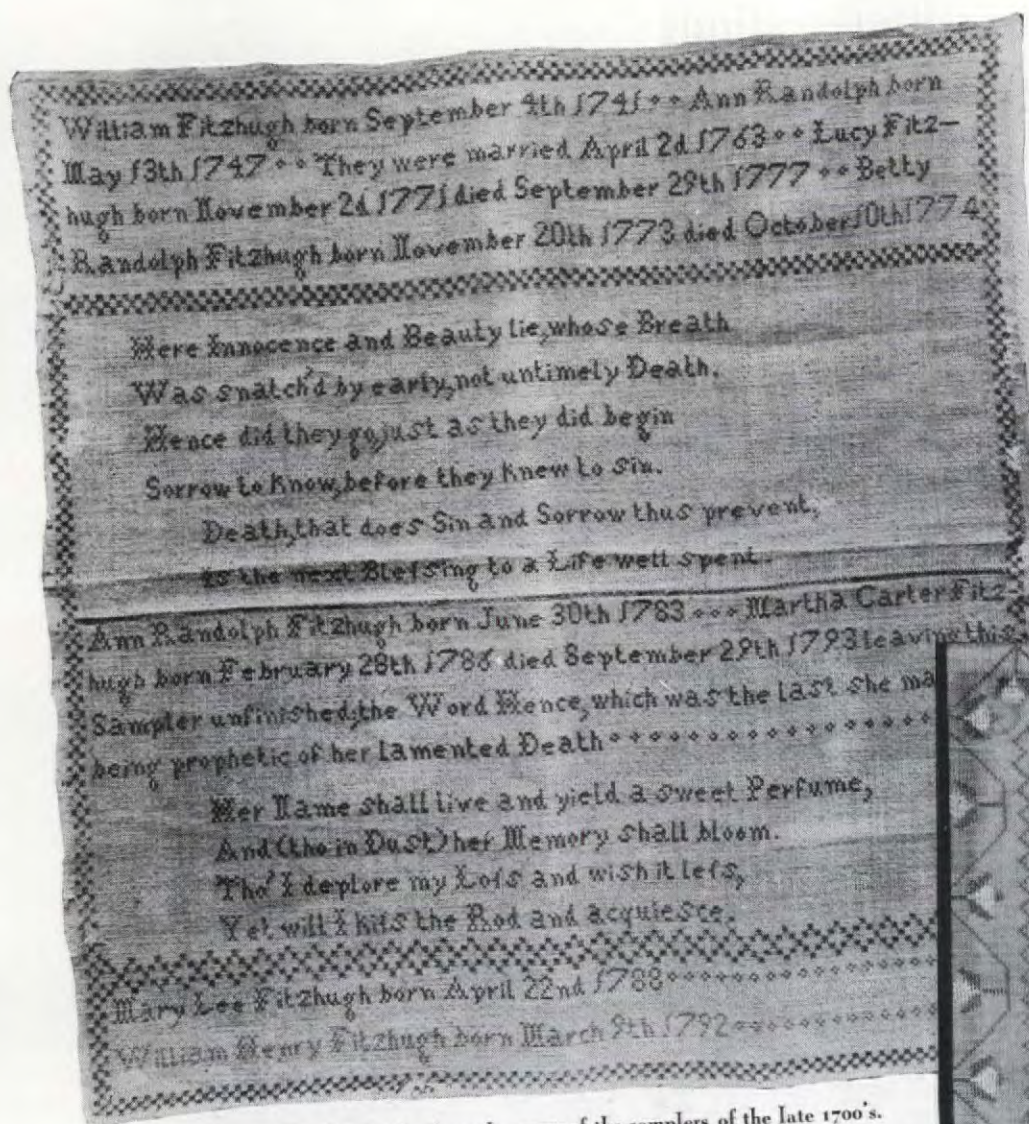 William Fitzhugh born September 4th 1741 Ann Randolph born
May 13th 1747 They were married April 2d 1763 Lucy Fitz-
hugh born November 2d 1771 died September 29th 1777 Betty
Randolph Fitzhugh born November 20th 1773 died October 10th 1774
Here Innocence and Beauty lie, whose Breath
Was snatch'd by early, not untimely Death.
Hence did they go, just as they did begin
Sorrow to Know, before they Knew to Sin.
Death, that does Sin and Sorrow thus prevent,
is the next Bleſsing to a Life well spent.
Ann Randolph Fitzhugh born June 30th 1783 Martha Carter Fitz-
hugh born February 28th 1786 died September 29th 1793 leaving this
Sampler unfinished, the Word Hence, which was the Last She
being prophetic of her Lamented Death
Her Name shall live and yield a sweet Perfume,
And (tho in Dust) her Memory shall bloom.
Tho' I deplore my Loſs and wish it leſs,
Yet will I kiſs the Rod and acquiesce.
Mary Lee Fitzhugh born April 22nd 1788
William Henry Fitzhugh born March 9th 1792
of the samplers of the late 1700's.